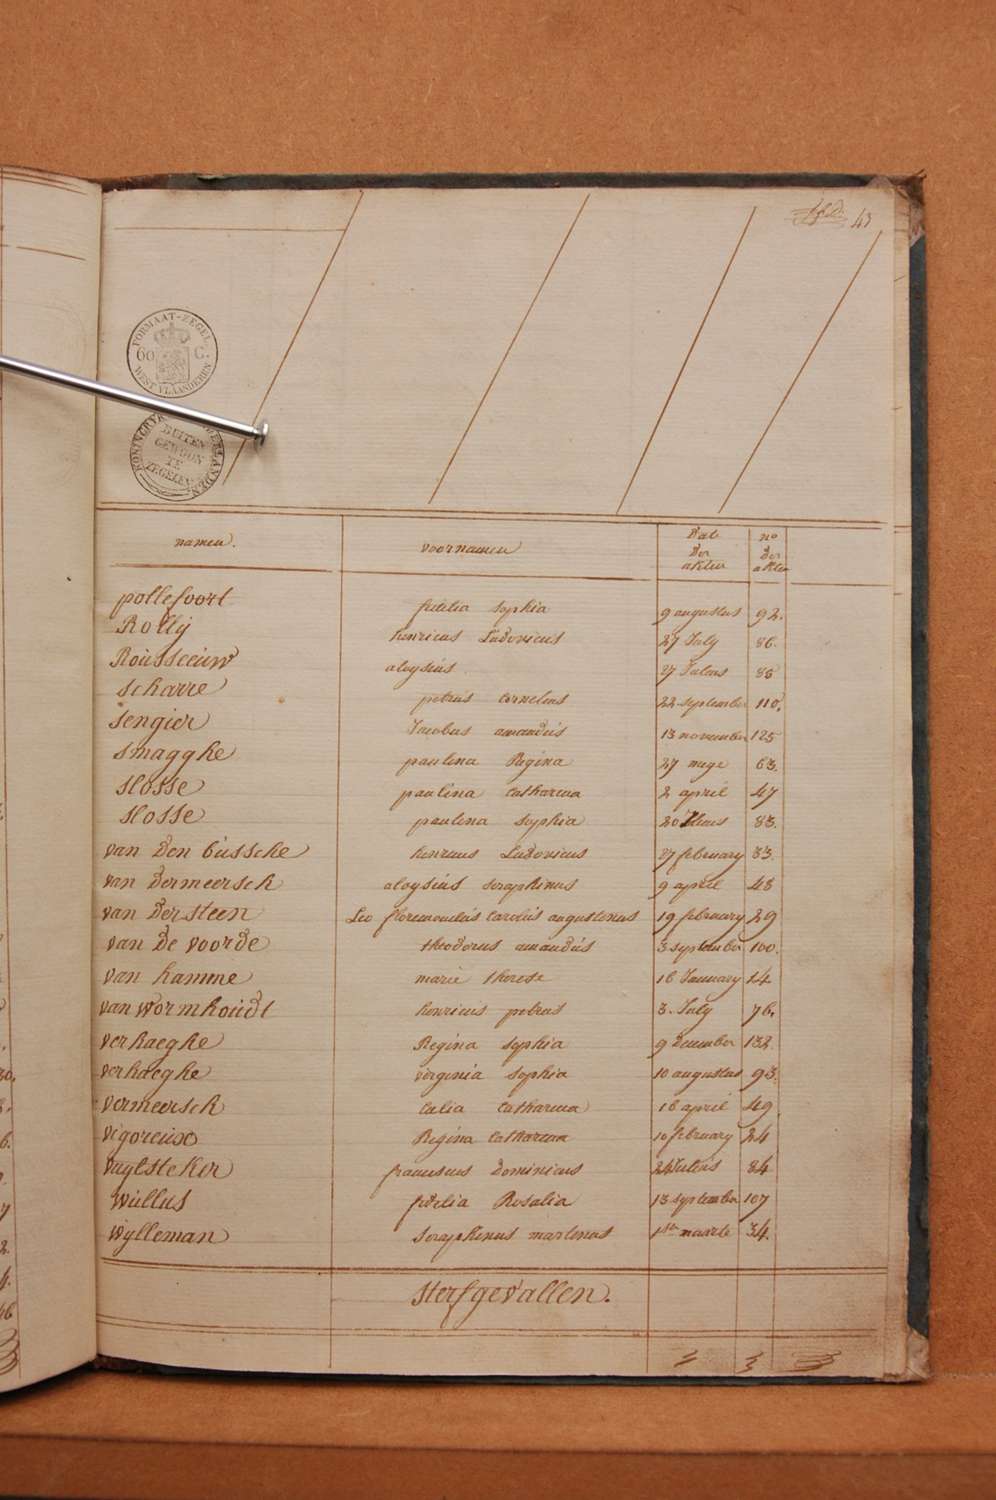 43
FORMAAT-ZEGEL
60 C.
WEST VLAANDEREN
BUITEN
GEWOON
TE
ZEGELEN
namen. voornamen Dat Der akten no Der akten
pollefoort fidelia sophia 9 augustus 92.
Rolly henricus Ludovicus 27 July 86.
Rousseeuw aloysius. 27 Julius 85
scharre petrus cornelius 22 september 110.
sengier Jacobus amandus 13 november 125
smagghe paulina Regina 27 meye 63.
slosse paulina catharina 2 april 47
slosse paulina sophia 20 Julius 83.
van Den bussche henricus Ludovicus 27 february 33.
van Dermeersch aloysius seraphinus 9 april 48
van Dersteen Leo carolus augustinus 19 february 29
van De voorde theodorus amandus 3 september 100.
van hamme marie therese 16 January 14
van wormhoudt henricus petrus 3. July 76.
verhaeghe Regina sophia 9 December 132.
verhaeghe virginia sophia 10 augustus 93.
vermeersch catharina 16 april 49
vigoreux Regina catharina 10 february 24
vuylsteker franciscus Dominicus 24 Julius 84
wullus fidelia Rosalia 13 september 107
wylleman seraphinus martinus 1ste maarte 34.
sterfgevallen.